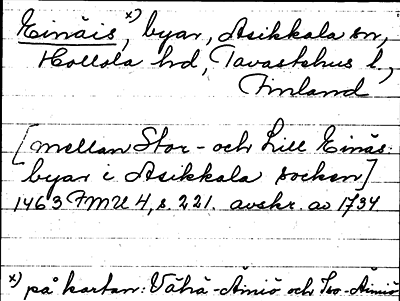 Einäis x), byar, Asikkala sn,
Hollola hd, Tavastehus l,
Finland
[mellan Stor- och Lill Einäs
byar i Asikkala socken]
1463 FMU 4, s. 221. avskr. av 1734
x) på kartan: Vähä-Äiniö och Iso-Äiniö